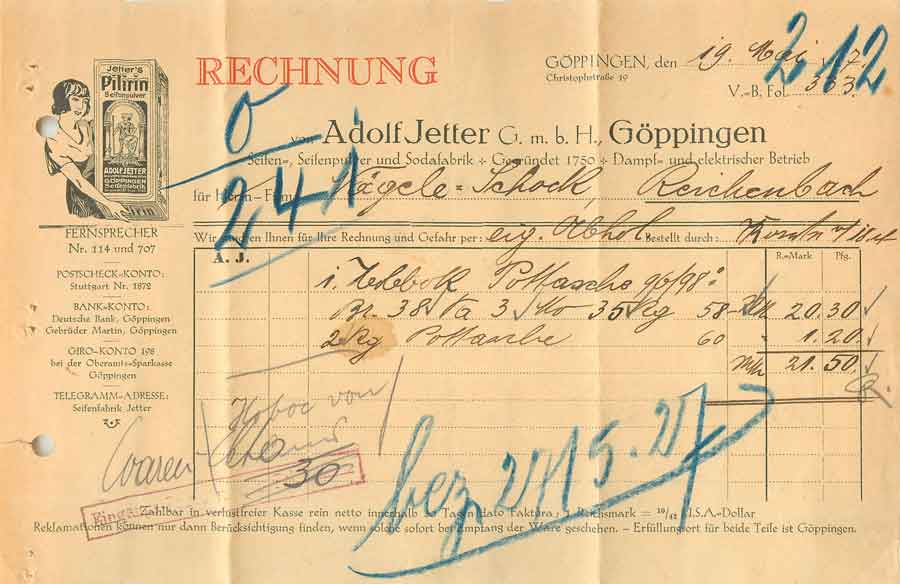 Jetter's
Pitirin
Seifenpulver
ADOLF JETTER
GÖPPINGEN
Seifenfabrik
RECHNUNG
GÖPPINGEN, den 19. Mai 27.
Christophstraße 19
V.=B. Fol. 333.
212
0
241
von Adolf Jetter G. m. b. H., Göppingen
Seifen=, Seifenpulver und Sodafabrik + Gegründet 1750 + Dampf= und elektrischer Betrieb
für Herrn=Firma Nägele=Schock, Reichenbach
Wir sandten Ihnen für Ihre Rechnung und Gefahr per: eig. Abhol. Bestellt durch:
FERNSPRECHER
Nr. 114 und 707
POSTSCHECK=KONTO:
Stuttgart Nr. 1872
BANK=KONTO:
Deutsche Bank, Göppingen
Gebrüder Martin, Göppingen
GIRO=KONTO 198
bei der Oberamts=Sparkasse
Göppingen
TELEGRAMM=ADRESSE:
Seifenfabrik Jetter
A. J.
R.=Mark Pfg.
1 Pottasche 96/98°
Br. 38 Ta 3 Nto 35 Kg 58 20.30
2 Kg Pottasche 60 " 1.20
Mk 21.50
Waren
30
bez. 27/5.27
Zahlbar in verlustfreier Kasse rein netto innerhalb 30 Tagen dato Faktura; 1 Reichsmark = 10/42 U.S.A.=Dollar
Reklamationen können nur dann Berücksichtigung finden, wenn solche sofort bei Empfang der Ware geschehen. – Erfüllungsort für beide Teile ist Göppingen.